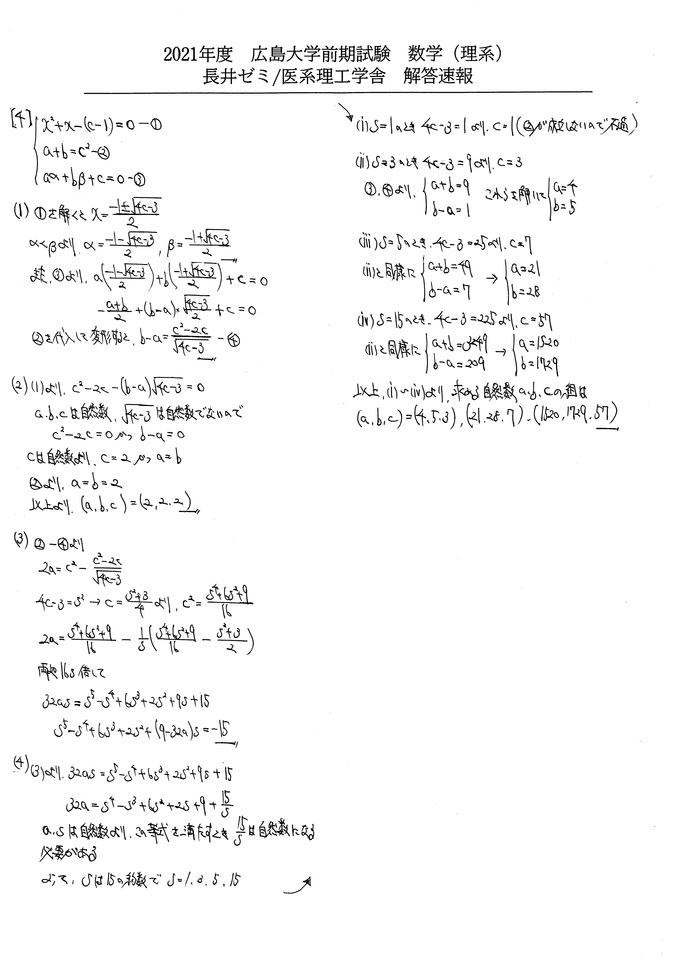 2021年度 広島大学前期試験 数学（理系）
長井ゼミ/医系理工学舎 解答速報
[4] { x²+x-(c-1)=0 -①
a+b=c² -②
aα+bβ+c=0 -③
(1) ①を解くと x= (-1±√(4c-3))/2
α<βより, α= (-1-√(4c-3))/2, β= (-1+√(4c-3))/2
また, ③より, a((-1-√(4c-3))/2)+b((-1+√(4c-3))/2)+c=0
-(a+b)/2+(b-a)×√(4c-3)/2+c=0
②を代入して変形すると, b-a= (c²-2c)/√(4c-3) -④
(2) (1)より, c²-2c-(b-a)√(4c-3)=0
a.b.cは自然数, √(4c-3)は自然数でないので
c²-2c=0かつ b-a=0
cは自然数より, c=2かつ a=b
②より, a=b=2
以上より, (a,b,c)=(2,2,2)
(3) ②-④より
2a=c²- (c²-2c)/√(4c-3)
4c-3=s² → c= (s²+3)/4 より, c²= (s⁴+6s²+9)/16
2a= (s⁴+6s²+9)/16 - 1/s((s⁴+6s²+9)/16 - (s²+3)/2)
両辺16s倍して
32as=s⁵-s⁴+6s³+2s²+9s+15
s⁵-s⁴+6s³+2s²+(9-32a)s=-15
(4) (3)より, 32as=s⁵-s⁴+6s³+2s²+9s+15
32a=s⁴-s³+6s²+2s+9+15/s
a,sは自然数より, この等式を満たすとき 15/s は自然数になる
必要がある
よって, sは15の約数で s=1.3.5.15
(i) s=1のとき 4c-3=1より, c=1(②が成立しないので不適)
(ii) s=3のとき 4c-3=9より, c=3
②,④より, { a+b=9 b-a=1 これらを解いて { a=4 b=5
(iii) s=5のとき, 4c-3=25より, c=7
(ii)と同様に { a+b=49 b-a=7 → { a=21 b=28
(iv) s=15のとき, 4c-3=225より, c=57
(ii)と同様に { a+b=3249 b-a=209 → { a=1520 b=1729
以上, (i)~(iv)より, 求める自然数a,b,cの組は
(a,b,c)=(4,5,3),(21,28,7),(1520,1729,57)